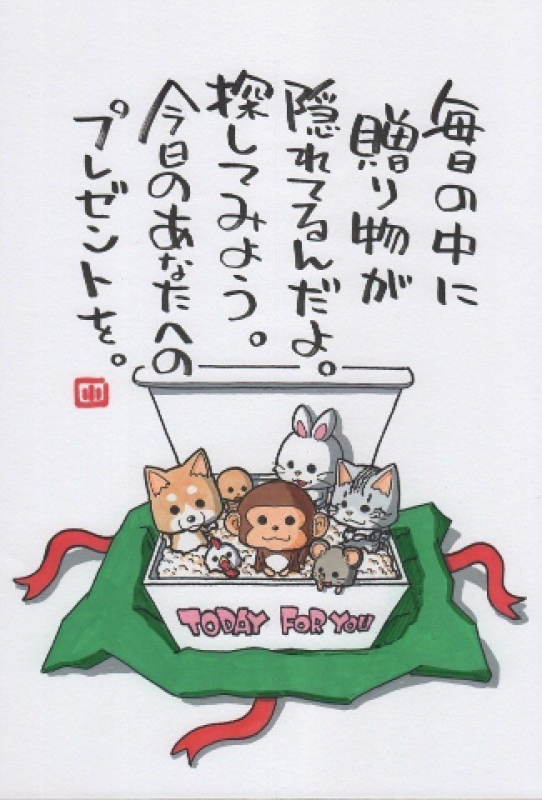 毎日の中に
贈り物が
隠れてるんだよ。
探してみよう。
今日のあなたへの
プレゼントを。
TODAY FOR YOU